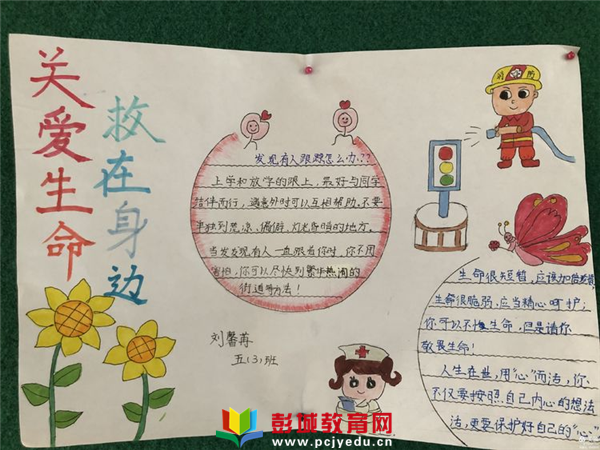 关爱生命
救在身边
发现有人跟踪怎么办??
上学和放学的路上，最好与同学
结伴而行，遇意外时可以互相帮助。不要
单独到荒凉、偏僻、灯光昏暗的地方。
当发现有人一直跟着你时，你不用
害怕，你可以尽快到繁华热闹的
街道等方法！
刘馨苒
五（3）班
消防
生命很短暂，应该加倍珍
生命很脆弱，应当精心呵护；
你可以不惜生命，但是请你
敬畏生命！
人生在世，用“心”而活，你
不仅要按照自己内心的想法
活，更要保护好自己的“心”
彭城教育网
www.pcjyedu.cn